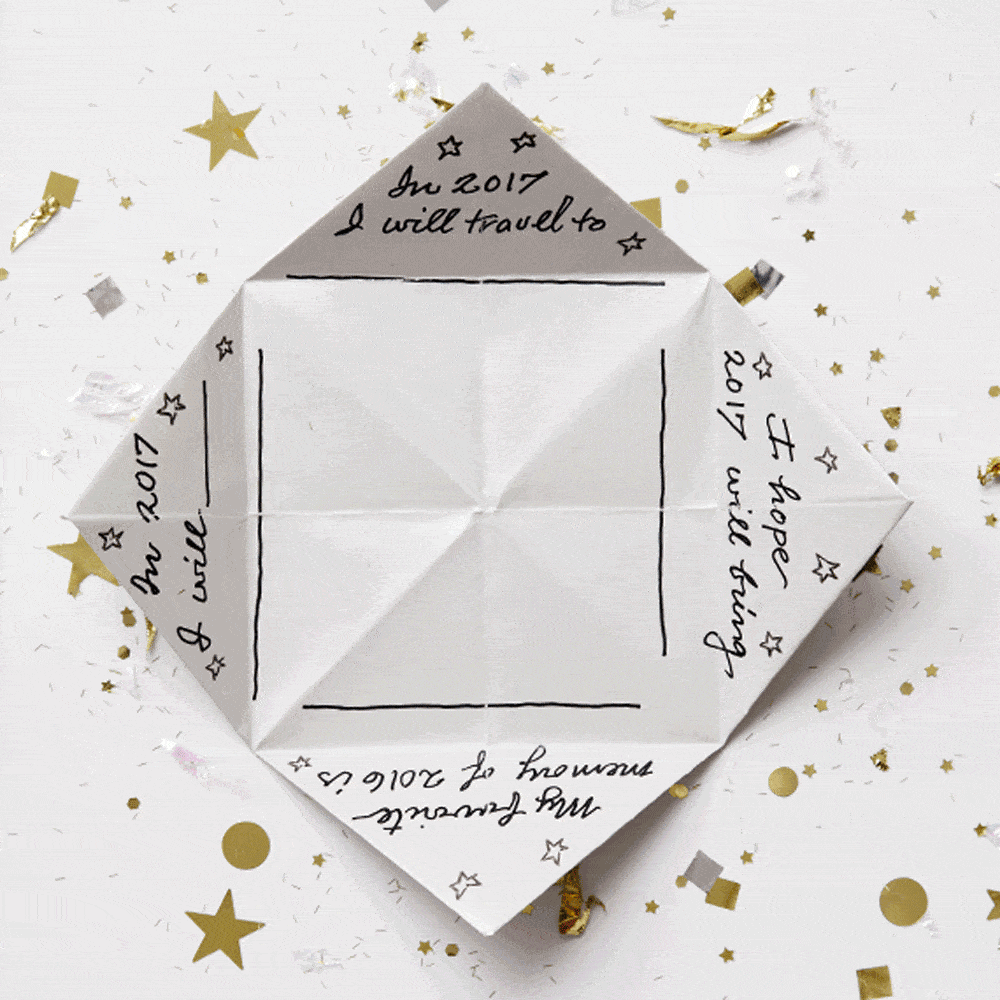 In 2017
I will travel to
I hope
2017 will bring
My favorite
memory of 2016 is
In 2017
I will